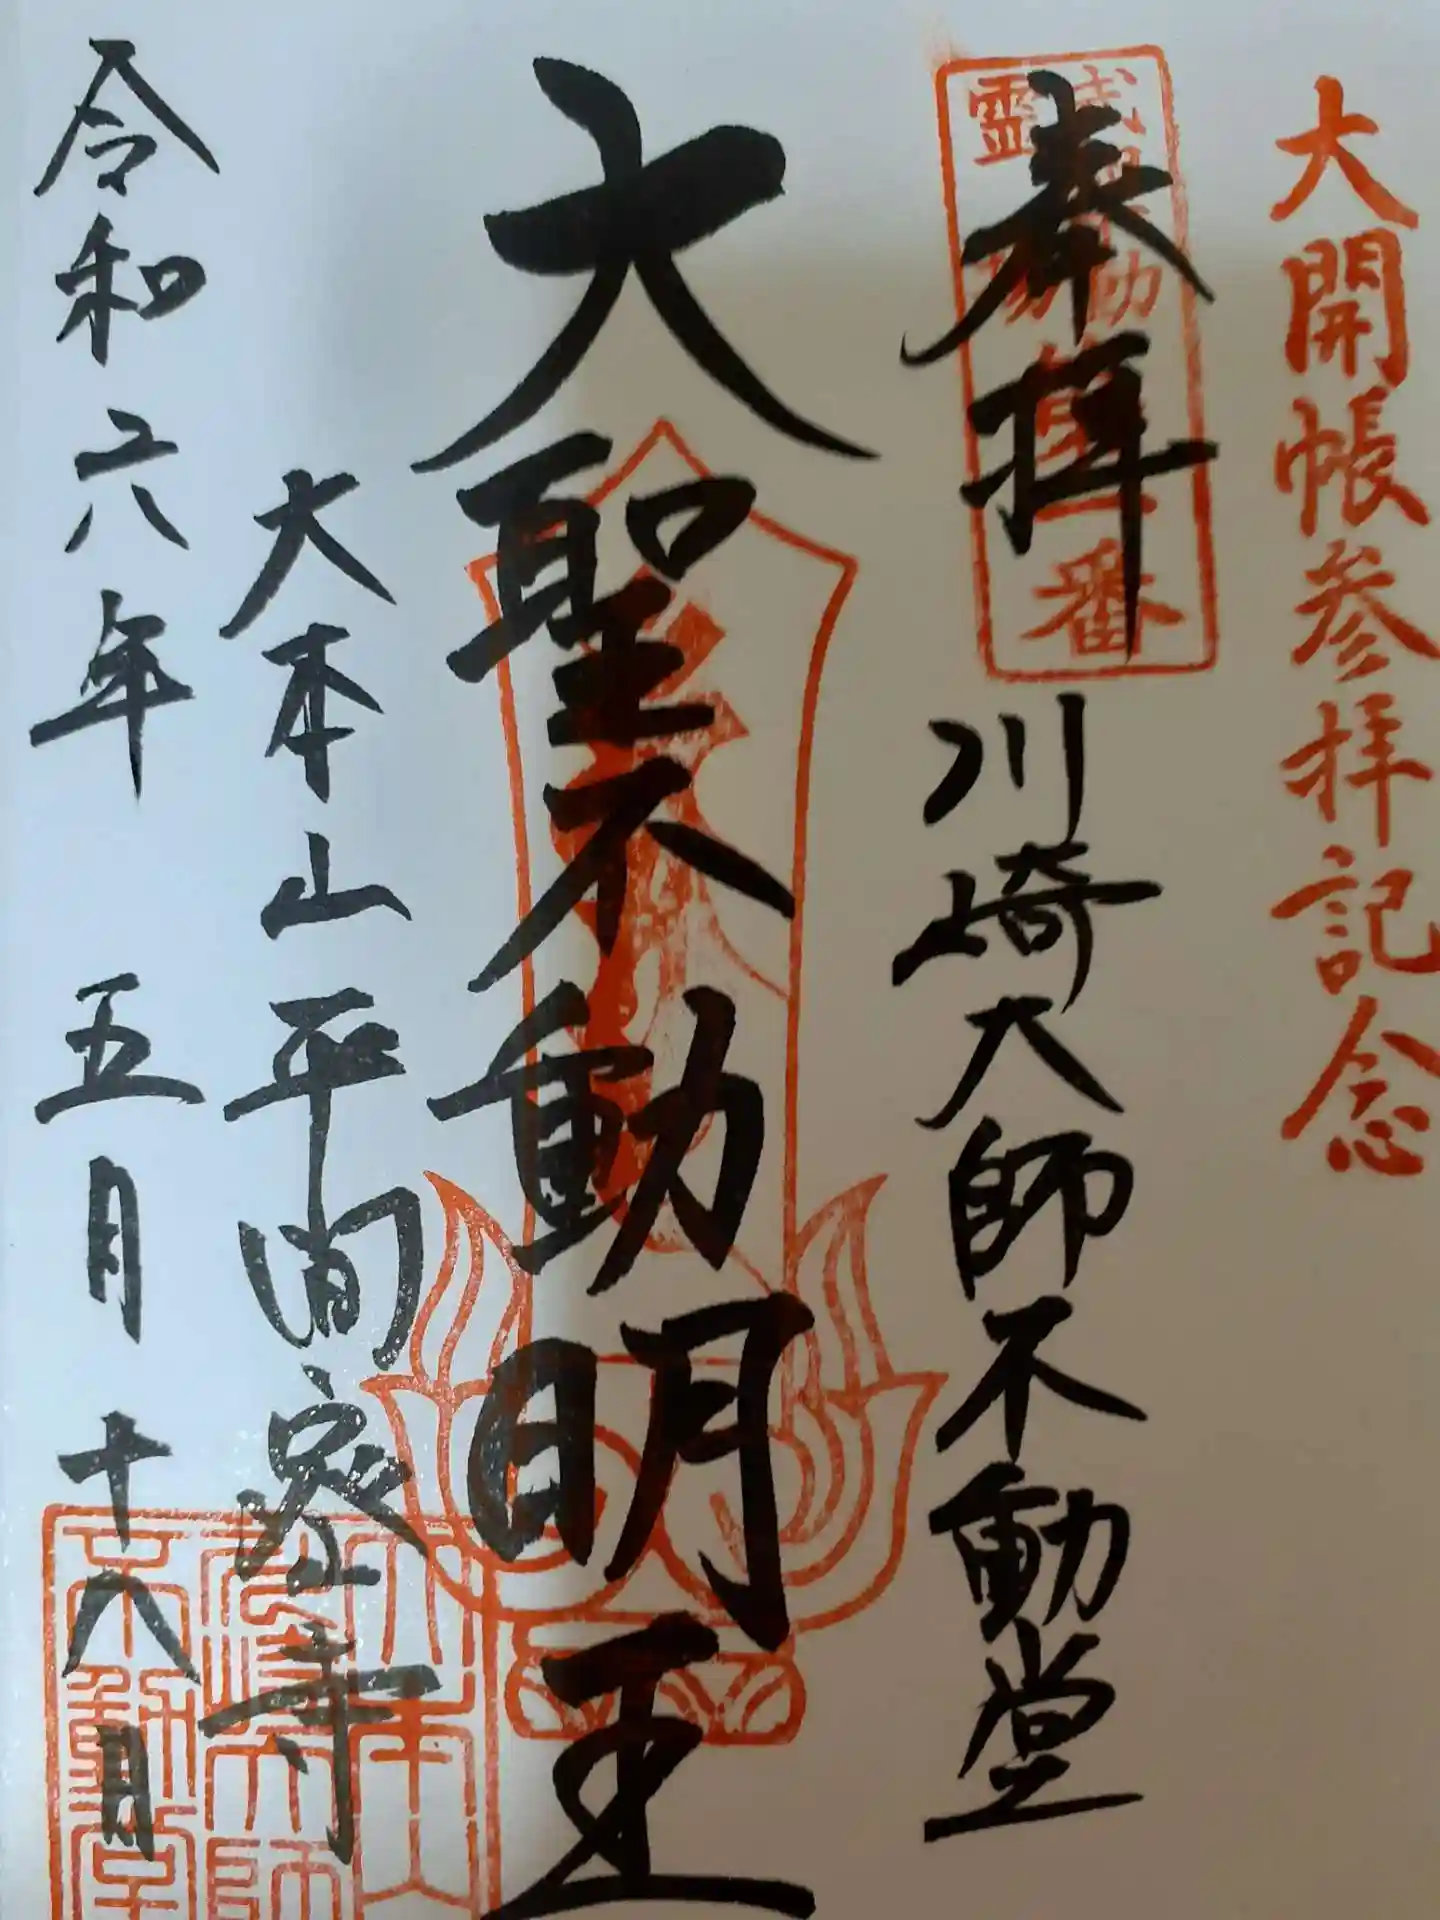 大開帳参拝記念
奉拝
川崎大師不動堂
大聖不動明王
大本山平間寺
令和六年 五月十八日
霊
番